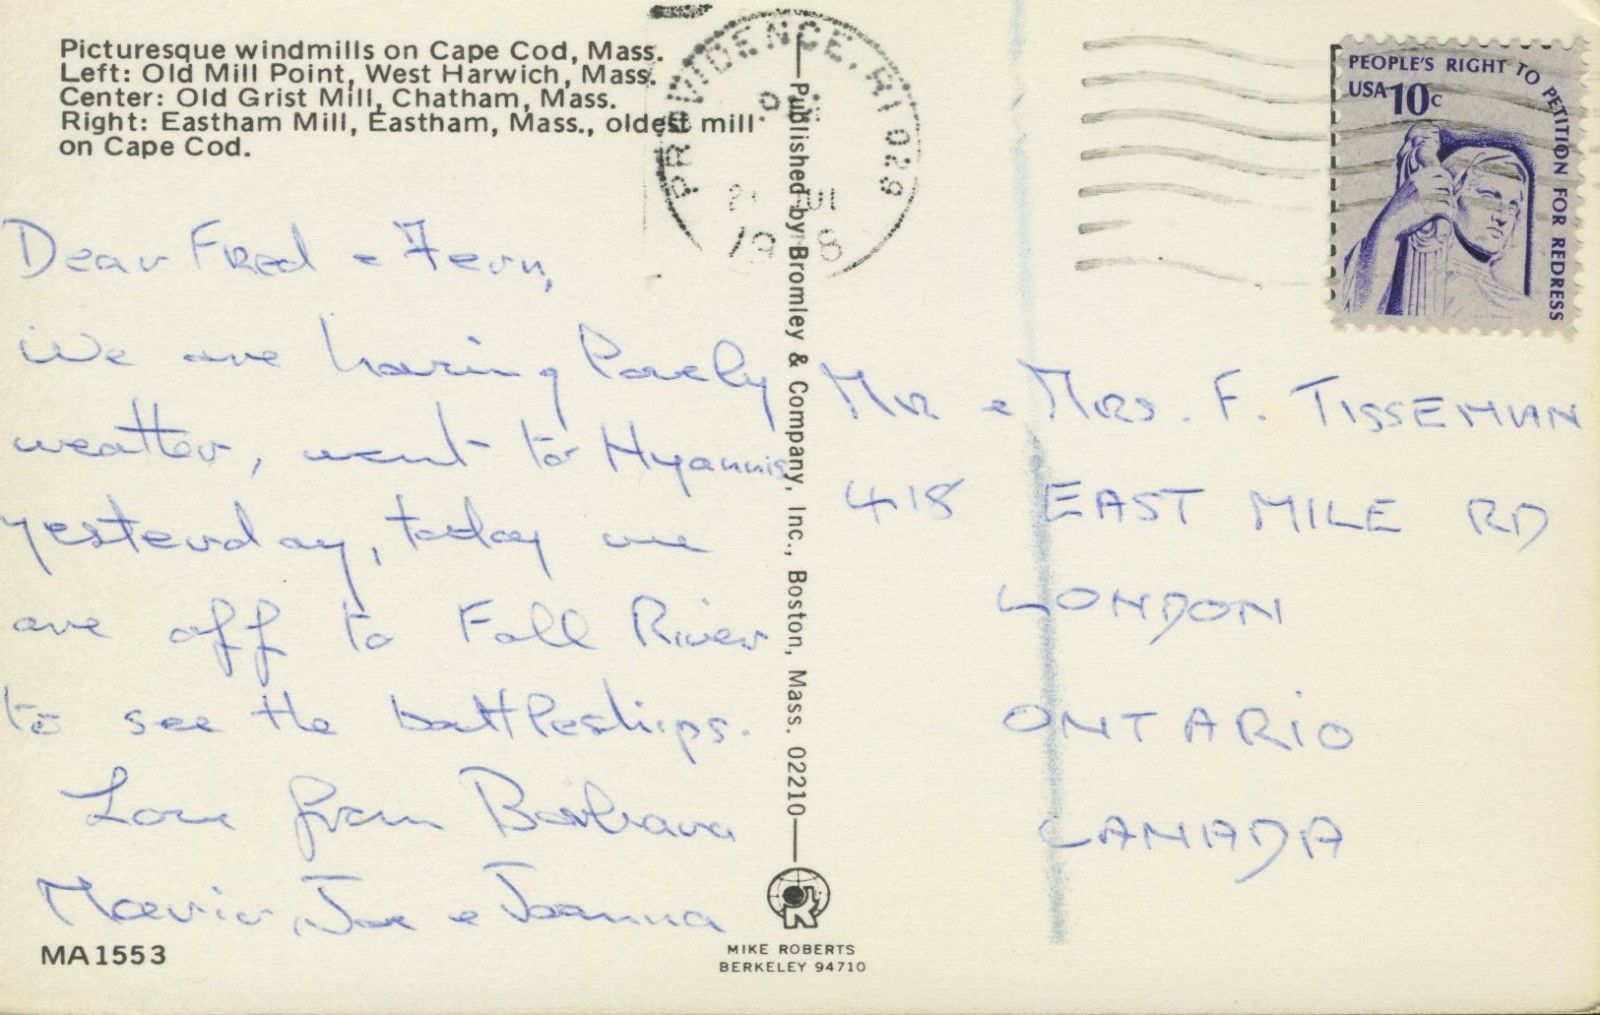 Picturesque windmills on Cape Cod, Mass.
Left: Old Mill Point, West Harwich, Mass.
Center: Old Grist Mill, Chatham, Mass.
Right: Eastham Mill, Eastham, Mass., oldest mill
on Cape Cod.
PROVIDENCE, RI 029
PM
21 JUL
1978
PEOPLE'S RIGHT TO PETITION FOR REDRESS
USA 10c
Dear Fred & Fern,
We are having lovely
weather, went to Hyannis
yesterday, today we
are off to Fall River
to see the battleships.
Love from Barbara
Joe & Joanna
MA1553
Published by Bromley & Company, Inc., Boston, Mass. 02210
MIKE ROBERTS
BERKELEY 94710
Mr & Mrs. F. TISSEMAN
418 EAST MILE RD
LONDON
ONTARIO
CANADA